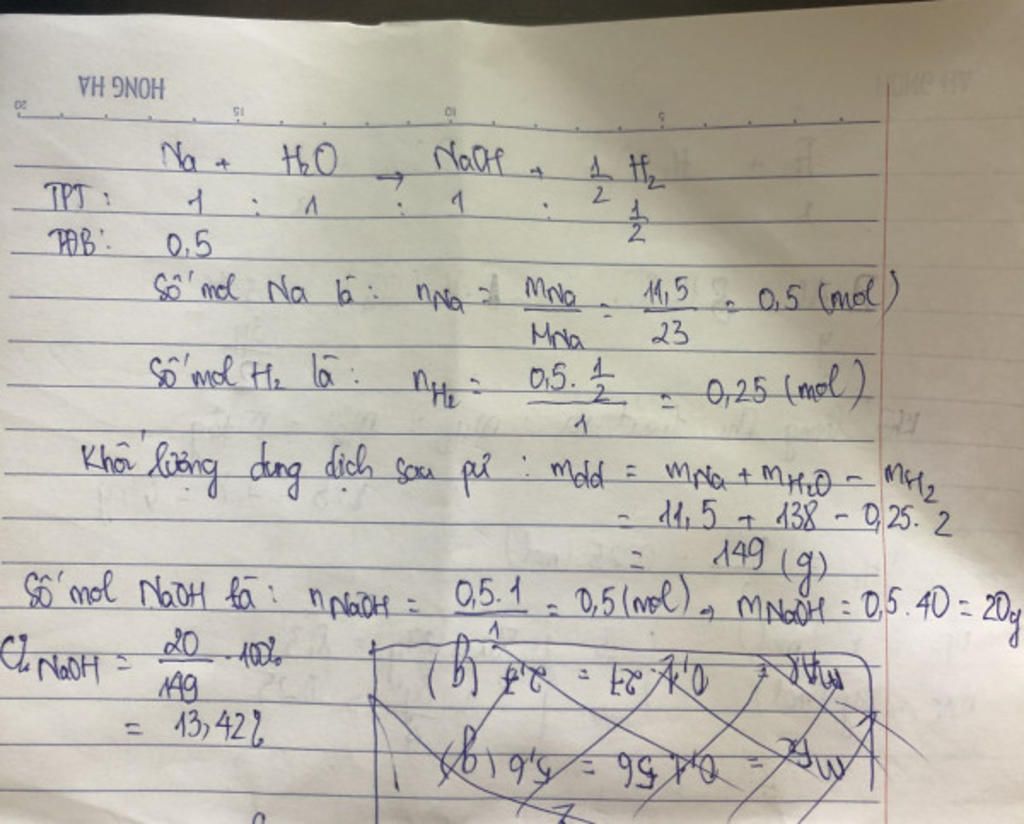 HONG HA
20 15 10 5
Na + H₂O → NaOH + 1/2 H₂
TPT: 1 : 1 : 1 : 1/2
TĐB: 0,5
Số mol Na là: nNa = mNa/MNa = 11,5/23 = 0,5 (mol)
Số mol H₂ là: nH₂ = (0,5 . 1/2)/1 = 0,25 (mol)
Khối lượng dung dịch sau pứ: mdd = mNa + mH₂O - mH₂
= 11,5 + 138 - 0,25.2
= 149 (g)
Số mol NaOH là: nNaOH = (0,5.1)/1 = 0,5 (mol), mNaOH = 0,5.40 = 20g
C% NaOH = 20/149 .100%
= 13,42%
mFe = 0,1.56 = 5,6 (g)
= 0,1.27 = 2,7 (g)